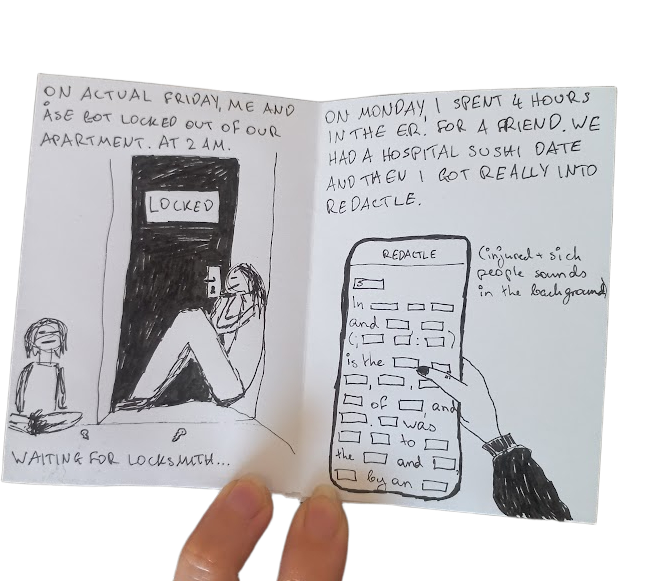 ON ACTUAL FRIDAY, ME AND
ÅSE GOT LOCKED OUT OF OUR
APARTMENT. AT 2 AM.
LOCKED
WAITING FOR LOCKSMITH...
ON MONDAY, I SPENT 4 HOURS
IN THE ER. FOR A FRIEND. WE
HAD A HOSPITAL SUSHI DATE
AND THEN I GOT REALLY INTO
REDACTLE.
REDACTLE
(injured + sick
people sounds
in the background)
In
and
(, : )
is the
, ,
of , and
. was
to
the and ,
by an